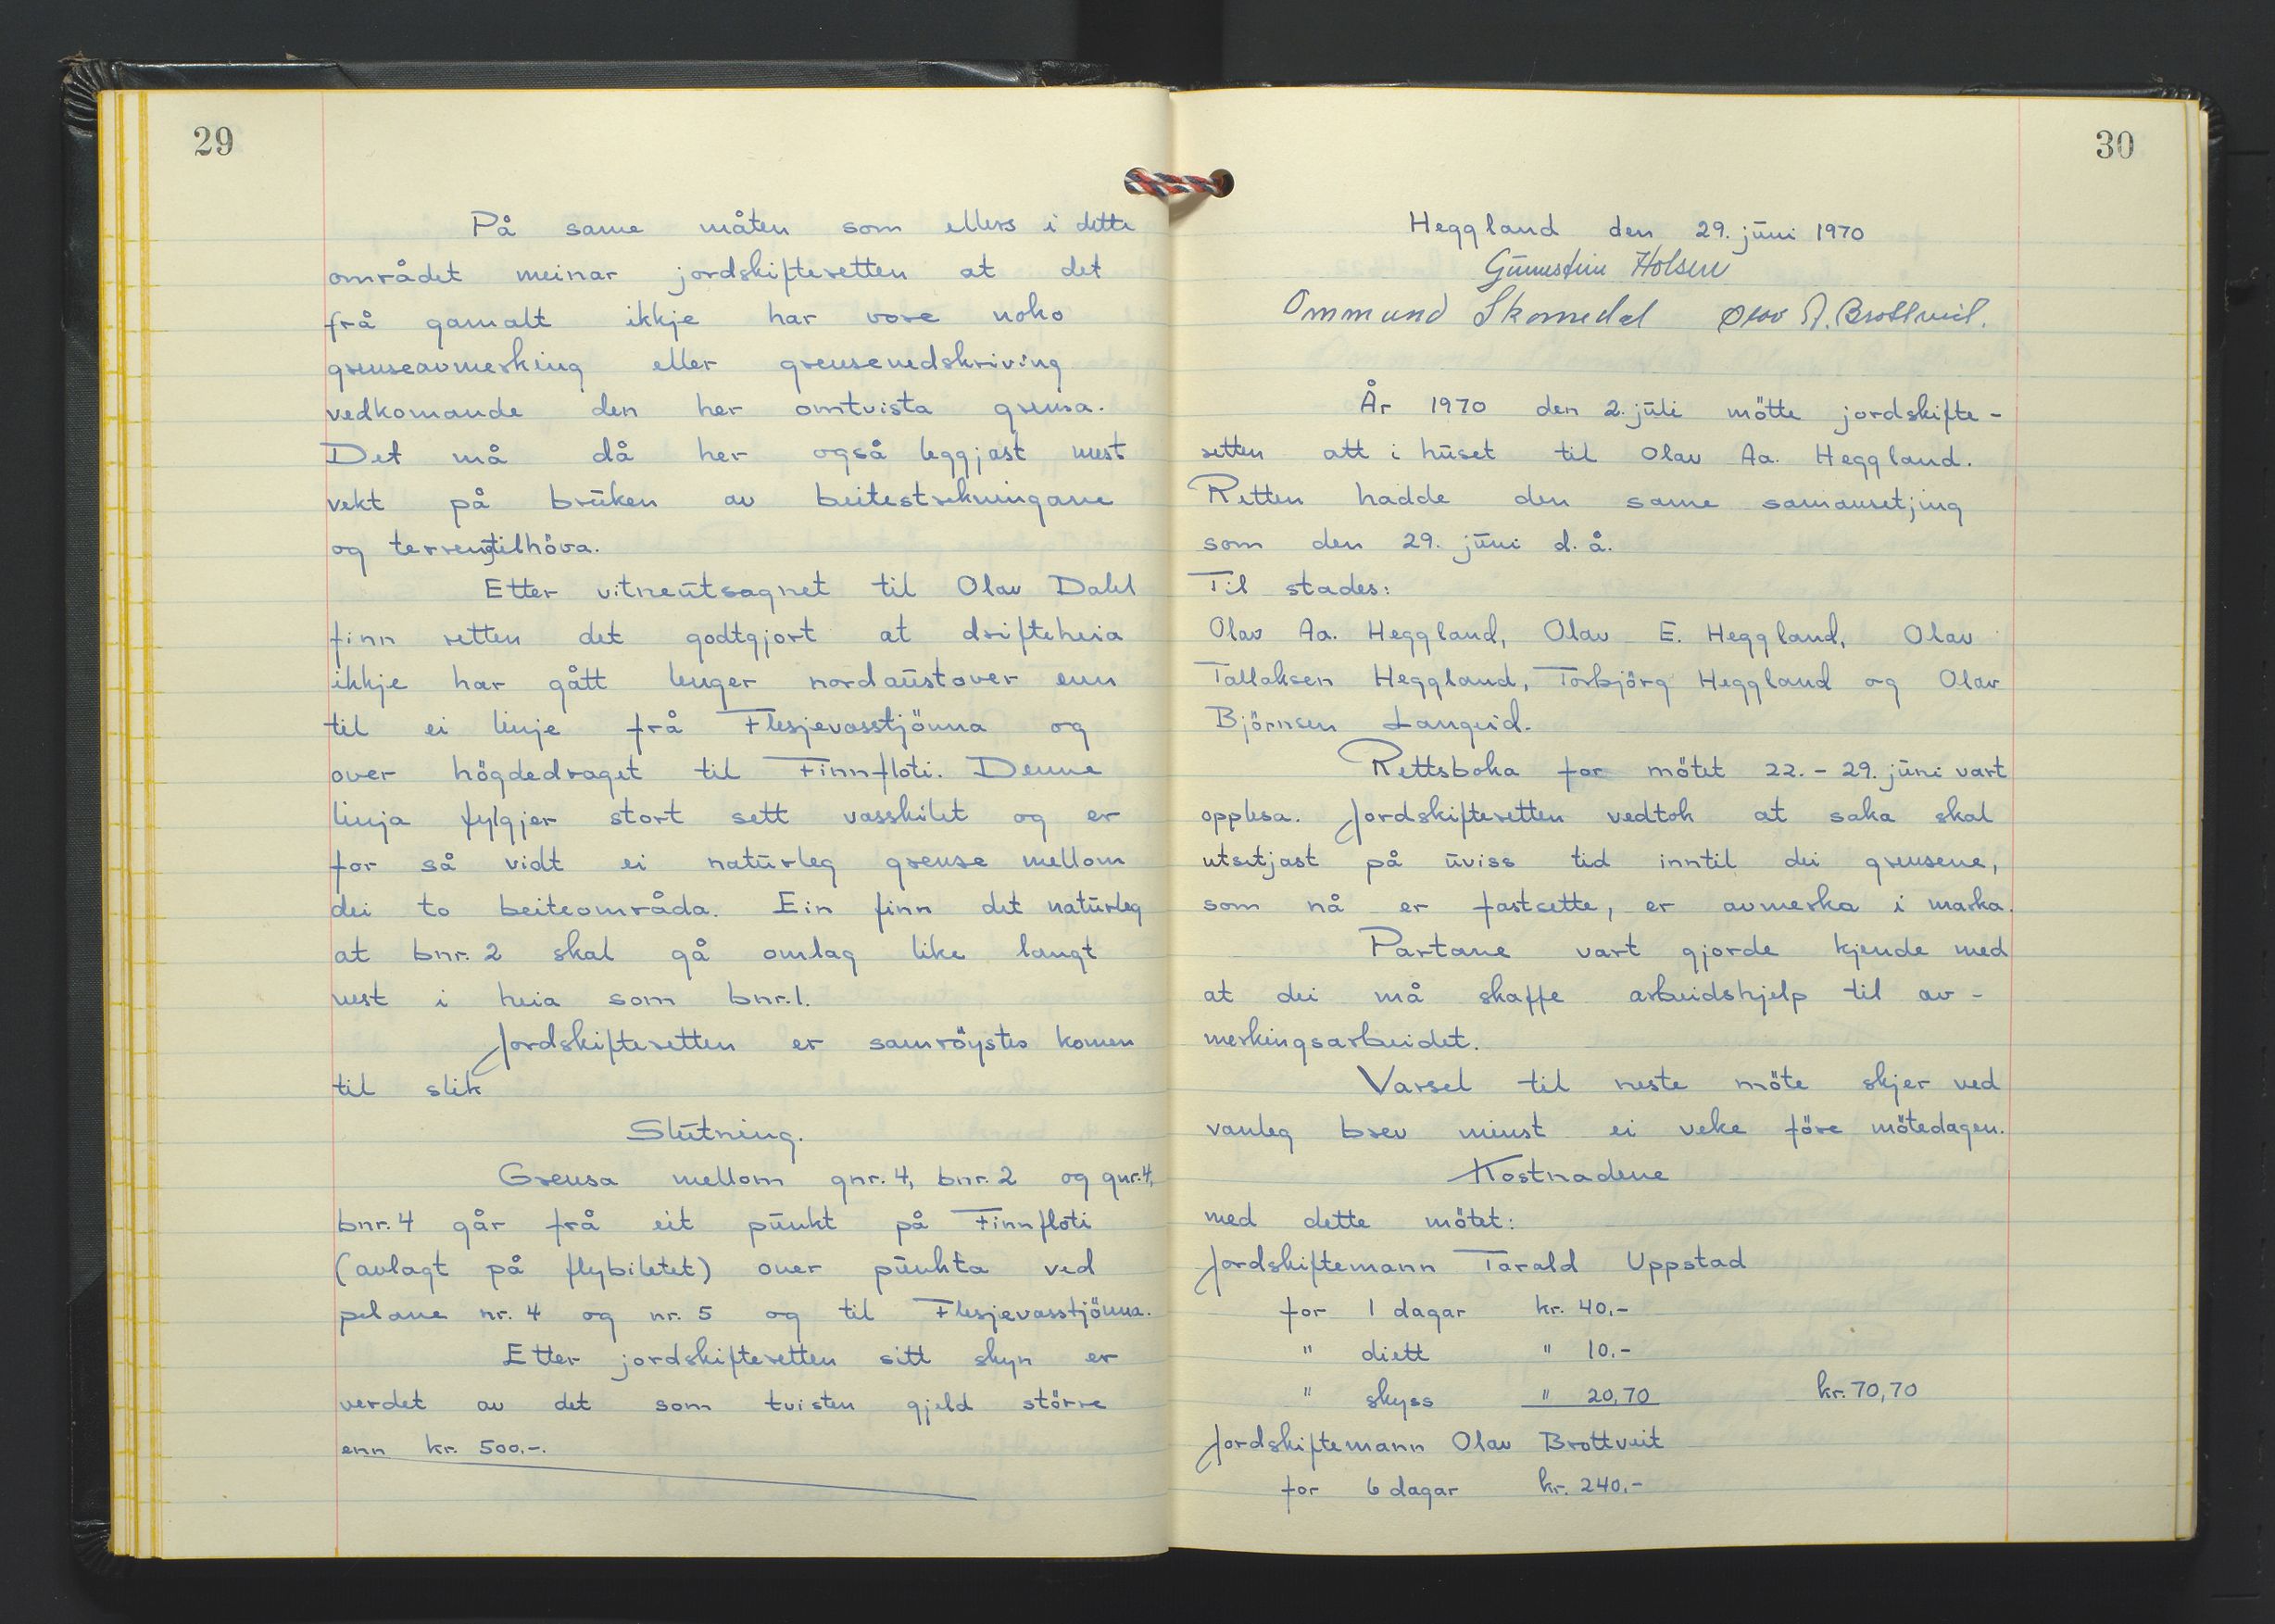 29
På same måten som ellers i dette
området meinar jordskifteretten at det
frå gamalt ikkje har vore noko
grenseavmerking eller grensenedskriving
vedkomande den her omtvista grensa.
Det må då her også leggjast mest
vekt på bruken av beitestrekningane
og terrengtilhöva.
Etter vitneutsagnet til Olav Dahl
finn retten det godtgjort at drifteheia
ikkje har gått lenger nordaustover enn
til ei linje frå Flesjevasstjönna og
over högdedraget til Finnfloti. Denne
linja fylgjer stort sett vasskilet og er
for så vidt ei naturleg grense mellom
dei to beiteområda. Ein finn det naturleg
at bnr. 2 skal gå omlag like langt
vest i heia som bnr. 1.
Jordskifteretten er samröystes komen
til slik
Slutning.
Grensa mellom gnr. 4, bnr. 2 og gnr. 4,
bnr. 4 går frå eit punkt på Finnfloti
(avlagt på flybiletet) over punkta ved
pelane nr. 4 og nr. 5 og til Flesjevasstjönna.
Etter jordskifteretten sitt skyn er
verdet av det som tvisten gjeld större
enn kr. 500.-.
30
Heggland den 29. juni 1970
Gunnstein Holsen
Ommund Skomedal Olav A. Brottveit.
År 1970 den 2. juli mötte jordskifte-
retten att i huset til Olav Aa. Heggland.
Retten hadde den same samansetjing
som den 29. juni d. å.
Til stades:
Olav Aa. Heggland, Olav E. Heggland, Olav
Tallaksen Heggland, Torbjörg Heggland og Olav
Björnsen Langeid.
Rettsboka for mötet 22. - 29. juni vart
opplesa. Jordskifteretten vedtok at saka skal
utsetjast på uviss tid inntil dei grensene,
som nå er fastsette, er avmerka i marka.
Partane vart gjorde kjende med
at dei må skaffe arbeidshjelp til av-
merkingsarbeidet.
Varsel til neste möte skjer ved
vanleg brev minst ei veke före mötedagen.
Kostnadene
med dette mötet:
Jordskiftemann Tarald Uppstad
for 1 dagar kr. 40.-
" diett " 10.-
" skyss " 20,70 kr. 70,70
Jordskiftemann Olav Brottveit
for 6 dagar kr. 240.-